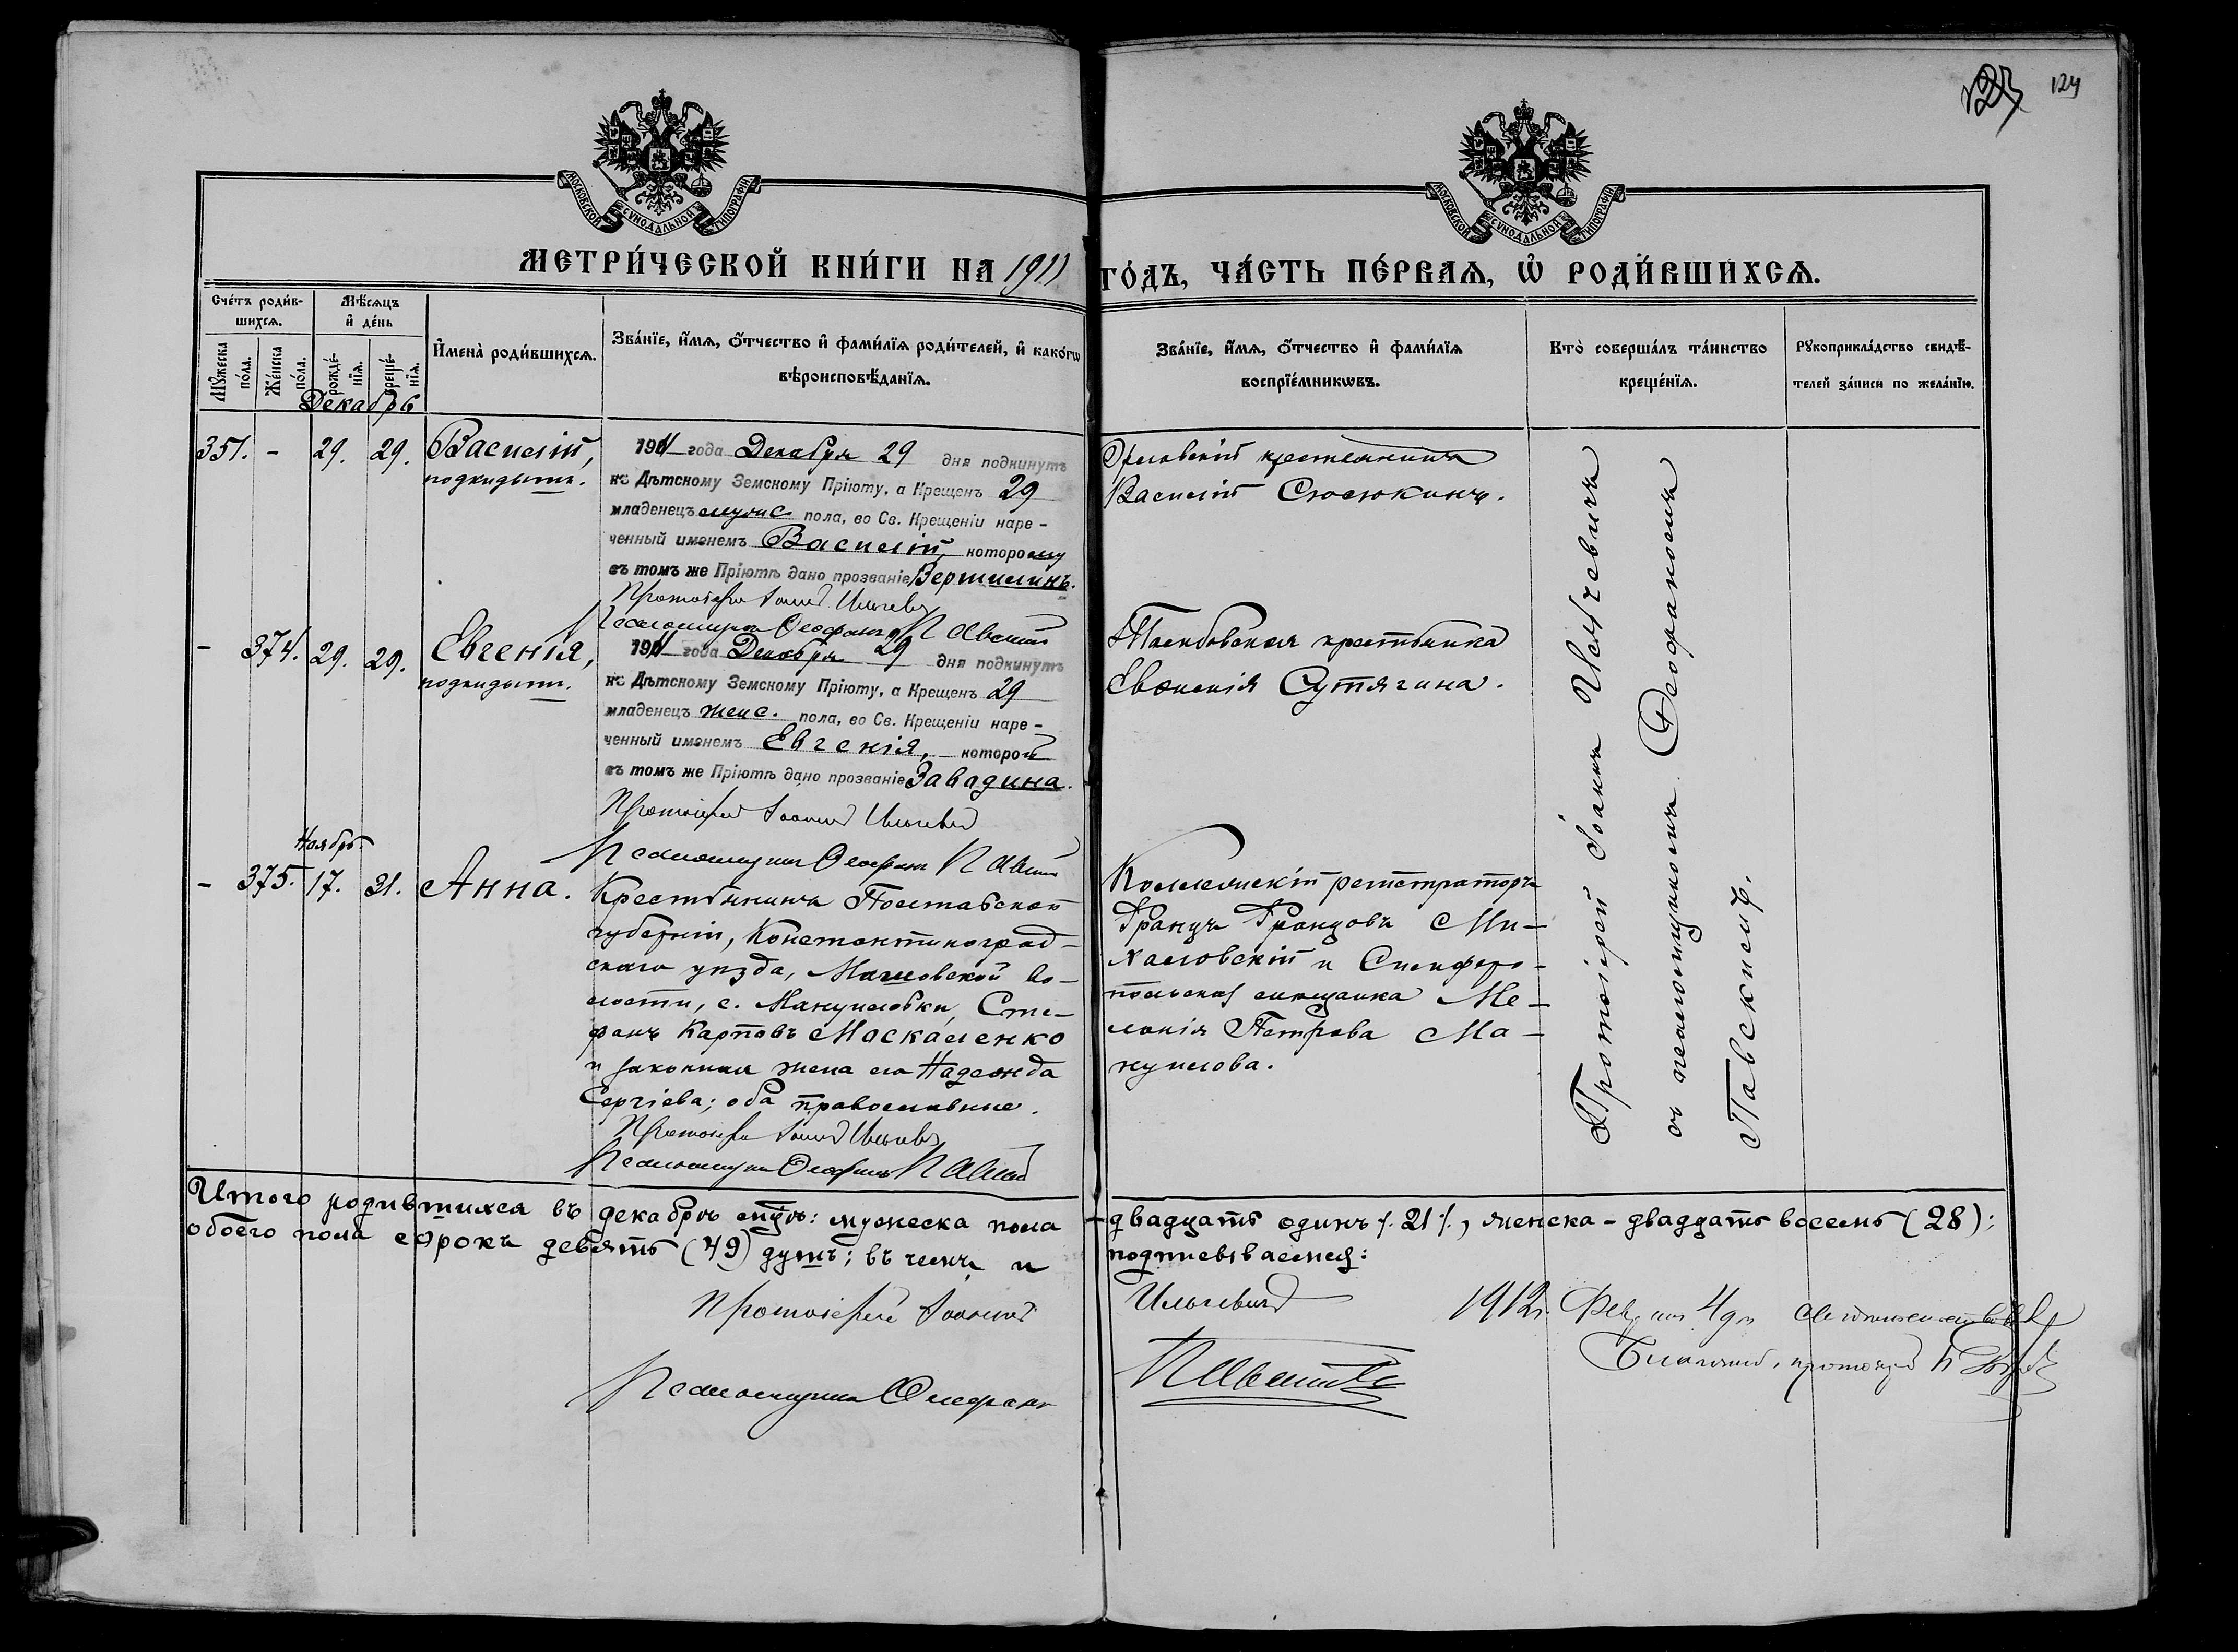 124
МОСКОВСКОЙ СѴНОДАЛЬНОЙ ТИПОГРАФІИ
МОСКОВСКОЙ СѴНОДАЛЬНОЙ ТИПОГРАФІИ
МЕТРИ́ЧЕСКОЙ КНИ́ГИ НА 1911 ГО́ДЪ, ЧА́СТЬ ПЕ́РВАѦ, Ѡ҆ РОДИ́ВШИХСѦ.
Сче́тъ роди́в-
шихсѧ.
Мꙋ́жеска
по́ла.
Же́нска
по́ла.
Мѣ́сѧцъ
и҆ де́нь
рожде́-
нїѧ.
креще́-
нїѧ.
И҆мена̀ роди́вшихсѧ.
Зва́нїе, и҆́мѧ, ѻ҆́тчество и҆ фами́лїѧ роди́телей, и҆ како́гѡ
вѣроисповѣ́данїѧ.
Зва́нїе, и҆́мѧ, ѻ҆́тчество и҆ фами́лїѧ
воспрїе́мникѡвъ.
Кто̀ соверша́лъ та́инство
креще́нїѧ.
Рꙋкоприкла́дство свидѣ́-
телей за́писи по жела́нїю.
Декабрь
351. - 29. 29. Василій,
подкидышъ.
1911 года Декабря 29 дня подкинутъ
къ Дѣтскому Земскому Пріюту, а Крещенъ 29
младенецъ мужс. пола, во Св. Крещеніи наре-
ченный именемъ Василій, которому
въ томъ же Пріютѣ дано прозваніе Вершилинъ.
Протоіерей Іоаннъ Ильчевичъ
Псаломщикъ Ѳеофанъ Павскій
Орловскій крестьянинъ
Василій Сюсюкинъ.
- 374. 29. 29. Евгенія,
подкидышъ.
1911 года Декабря 29 дня подкинутъ
къ Дѣтскому Земскому Пріюту, а Крещенъ 29
младенецъ женс. пола, во Св. Крещеніи наре-
ченный именемъ Евгенія, которой
въ томъ же Пріютѣ дано прозваніе Завадина.
Протоіерей Іоаннъ Ильчевичъ
Псаломщикъ Ѳеофанъ Павскій
Тамбовская крестьянка
Евѳимія Сутягина.
Ноябрь
- 375. 17. 31. Анна.
Крестьянинъ Полтавской
губерніи, Константиноград-
скаго уѣзда, Машовской во-
лости, с. Мануиловки, Сте-
фанъ Карповъ Маскаленко
и законная жена его Надежда
Сергіева; оба православные.
Протоіерей Іоаннъ Ильчевичъ
Псаломщикъ Ѳеофанъ Павскій
Коллежскій регистраторъ
Францъ Францовъ Ми-
халовскій и Симферо-
польская мѣщанка Ме-
ланія Петрова Ма-
нуилова.
Протоіерей Іоаннъ Ильчевичъ
съ псаломщикомъ Ѳеофаномъ
Павскимъ.
Итого родившихся въ декабрѣ мцѣ: мужеска пола - двадцать одинъ /. 21 /., женска - двадцать восемь (28);
обоего пола сорокъ девять (49) душъ; въ чемъ и подписываемся:
Протоіерей Іоаннъ Ильчевичъ
Псаломщикъ Ѳеофанъ Павскій
1912 г. Фев 4 дня свидѣтельствовалъ
Благочинный, протоіерей